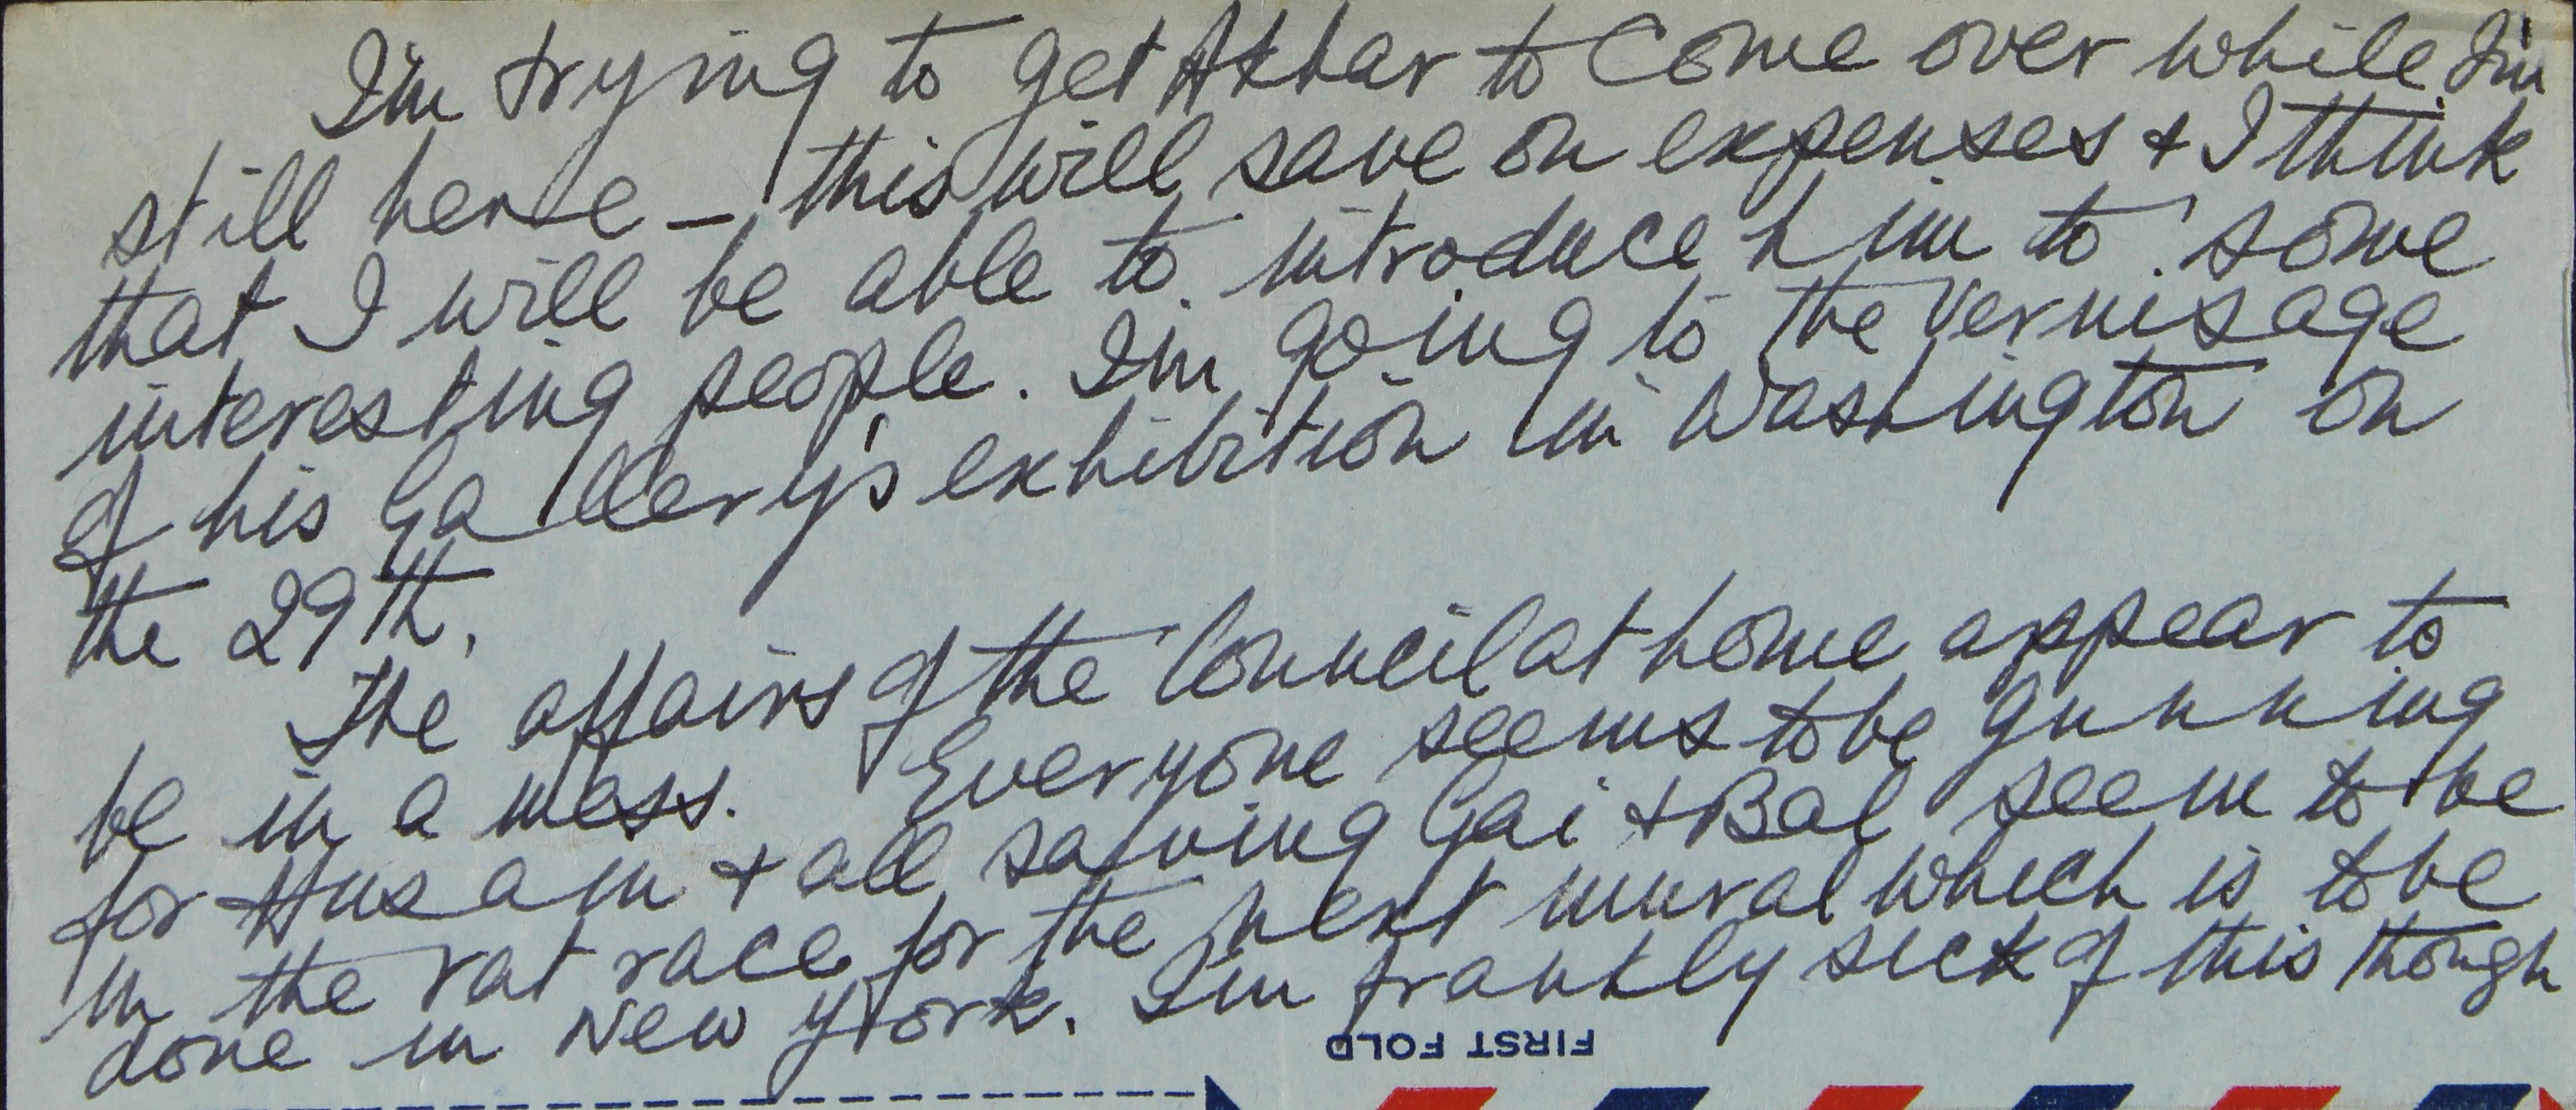 I'm trying to get Akbar to come over while I'm
still here — this will save on expenses + I think
that I will be able to introduce him to some
interesting people. I'm going to the vernisage
of his Gallery's exhibition in Washington on
the 29th.
The affairs of the Council at home appear to
be in a mess. Everyone seems to be gunning
for Husain + all saving Gai + Bal seem to be
in the rat race for the next mural which is to be
done in New York. I'm frankly sick of this though
FIRST FOLD